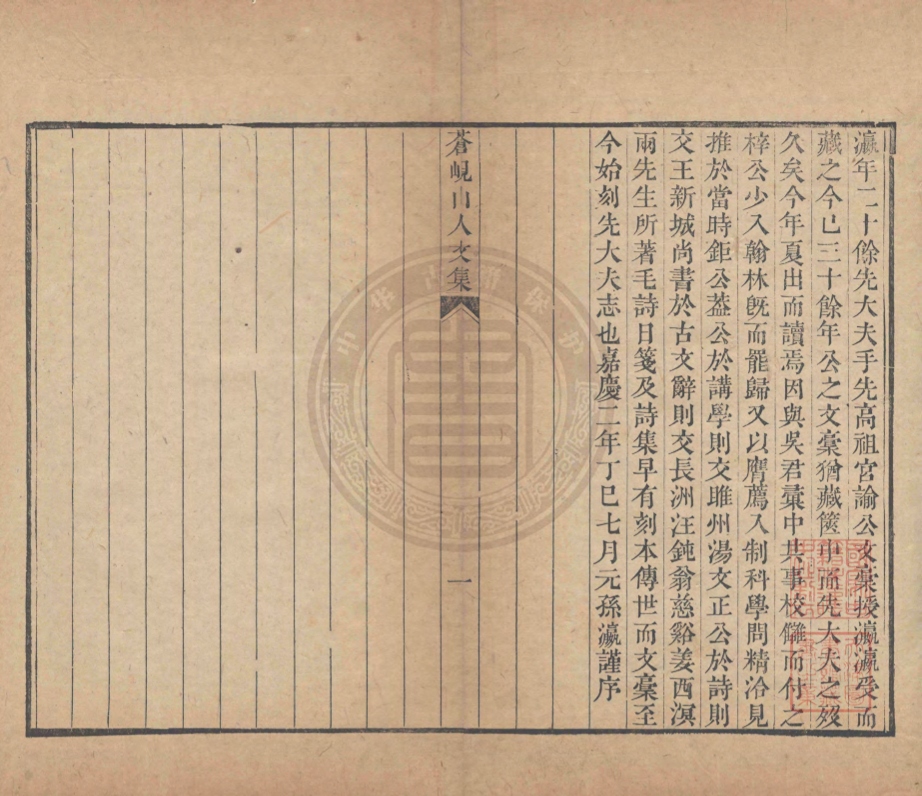 瀛年二十餘先大夫手先高祖宮諭公文稾授瀛瀛受而
藏之今已三十餘年公之文稾猶藏篋中而先大夫之歿
久矣今年夏出而讀焉因與吳君蕖中共事校讎而付之
梓公少入翰林旣而罷歸又以膺薦入制科學問精洽見
推於當時鉅公葢公於講學則交睢州湯文正公於詩則
交王新城尚書於古文辭則交長洲汪鈍翁慈谿姜西溟
兩先生所著毛詩日箋及詩集早有刻本傳世而文稾至
今始刻先大夫志也嘉慶二年丁巳七月元孫瀛謹序
蒼峴山人文集
一